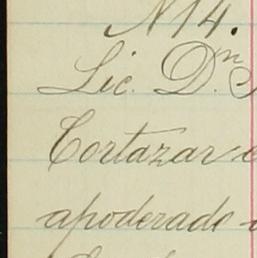 N14.
Lic. Dn
Cortazar e
apoderado